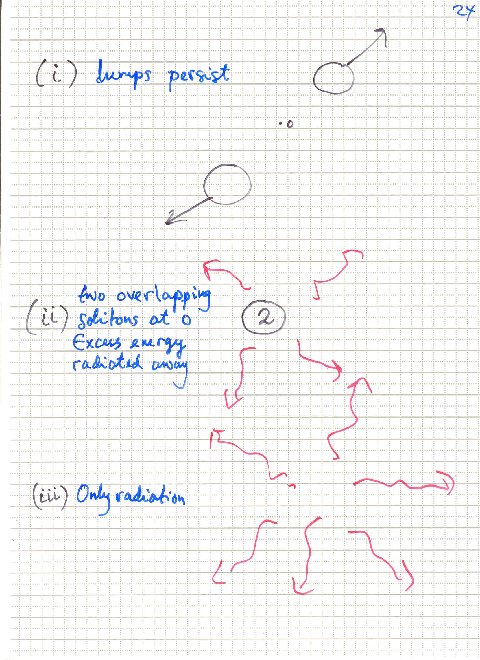 24
(i) lumps persist
• 0
two overlapping
(ii) solitons at 0
Excess energy
radiated away
2
(iii) Only radiation